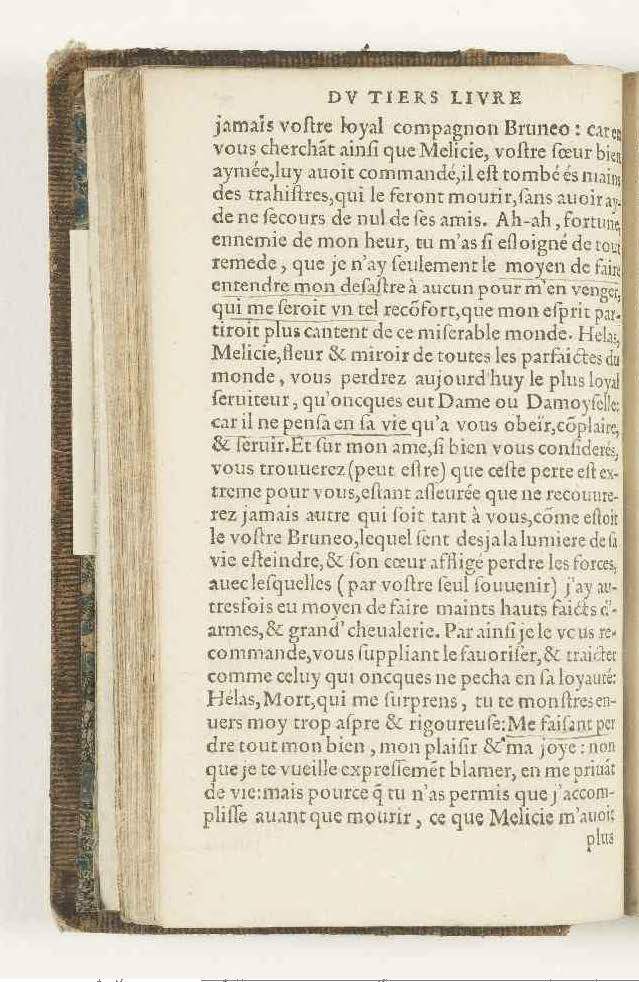 DV TIERS LIVRE
jamais voſtre loyal compagnon Bruneo : car en
vous cherchãt ainſi que Melicie, voſtre ſœur bien
aymée,luy auoit commandé,il eſt tombé és mains
des trahiſtres,qui le feront mourir,ſans auoir ay-
de ne ſecours de nul de ſes amis. Ah-ah, fortune,
ennemie de mon heur, tu m'as ſi eſloigné de tout
remede, que je n'ay ſeulement le moyen de faire
entendre mon deſaſtre à aucun pour m'en venger,
qui me ſeroit vn tel recõfort,que mon eſprit par-
tiroit plus cantent de ce miſerable monde. Helas,
Melicie,fleur & miroir de toutes les parfaictes du
monde, vous perdrez aujourd'huy le plus loyal
ſeruiteur, qu'oncques eut Dame ou Damoyſelle:
car il ne penſa en ſa vie qu'a vous obeïr,cõplaire,
& ſeruir.Et ſur mon ame,ſi bien vous conſiderés,
vous trouuerez (peut eſtre) que ceſte perte eſt ex-
treme pour vous,eſtant aſſeurée que ne recouure-
rez jamais autre qui ſoit tant à vous,cõme eſtoit
le voſtre Bruneo,lequel ſent desja la lumiere de ſa
vie eſteindre,& ſon cœur affligé perdre les forces,
auec leſquelles (par voſtre ſeul ſouuenir) j'ay au-
tresfois eu moyen de faire maints hauts faicts d'-
armes,& grand' cheualerie. Par ainſi je le vous re-
commande,vous ſuppliant le fauoriſer,& traicter
comme celuy qui oncques ne pecha en ſa loyauté:
Helas,Mort,qui me ſurprens, tu te monſtres en-
uers moy trop aſpre & rigoureuſe:Me faiſant per
dre tout mon bien, mon plaiſir & ma joye : non
que je te vueille expreſſemẽt blamer, en me priuãt
de vie:mais pource q̃ tu n'as permis que j'accom-
pliſſe auant que mourir, ce que Melicie m'auoit
plus